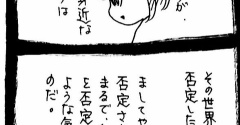 が.
身近な
は
その世界
否定した
ましてや
否定さ
まるで.
を否定
ような気
のだ。